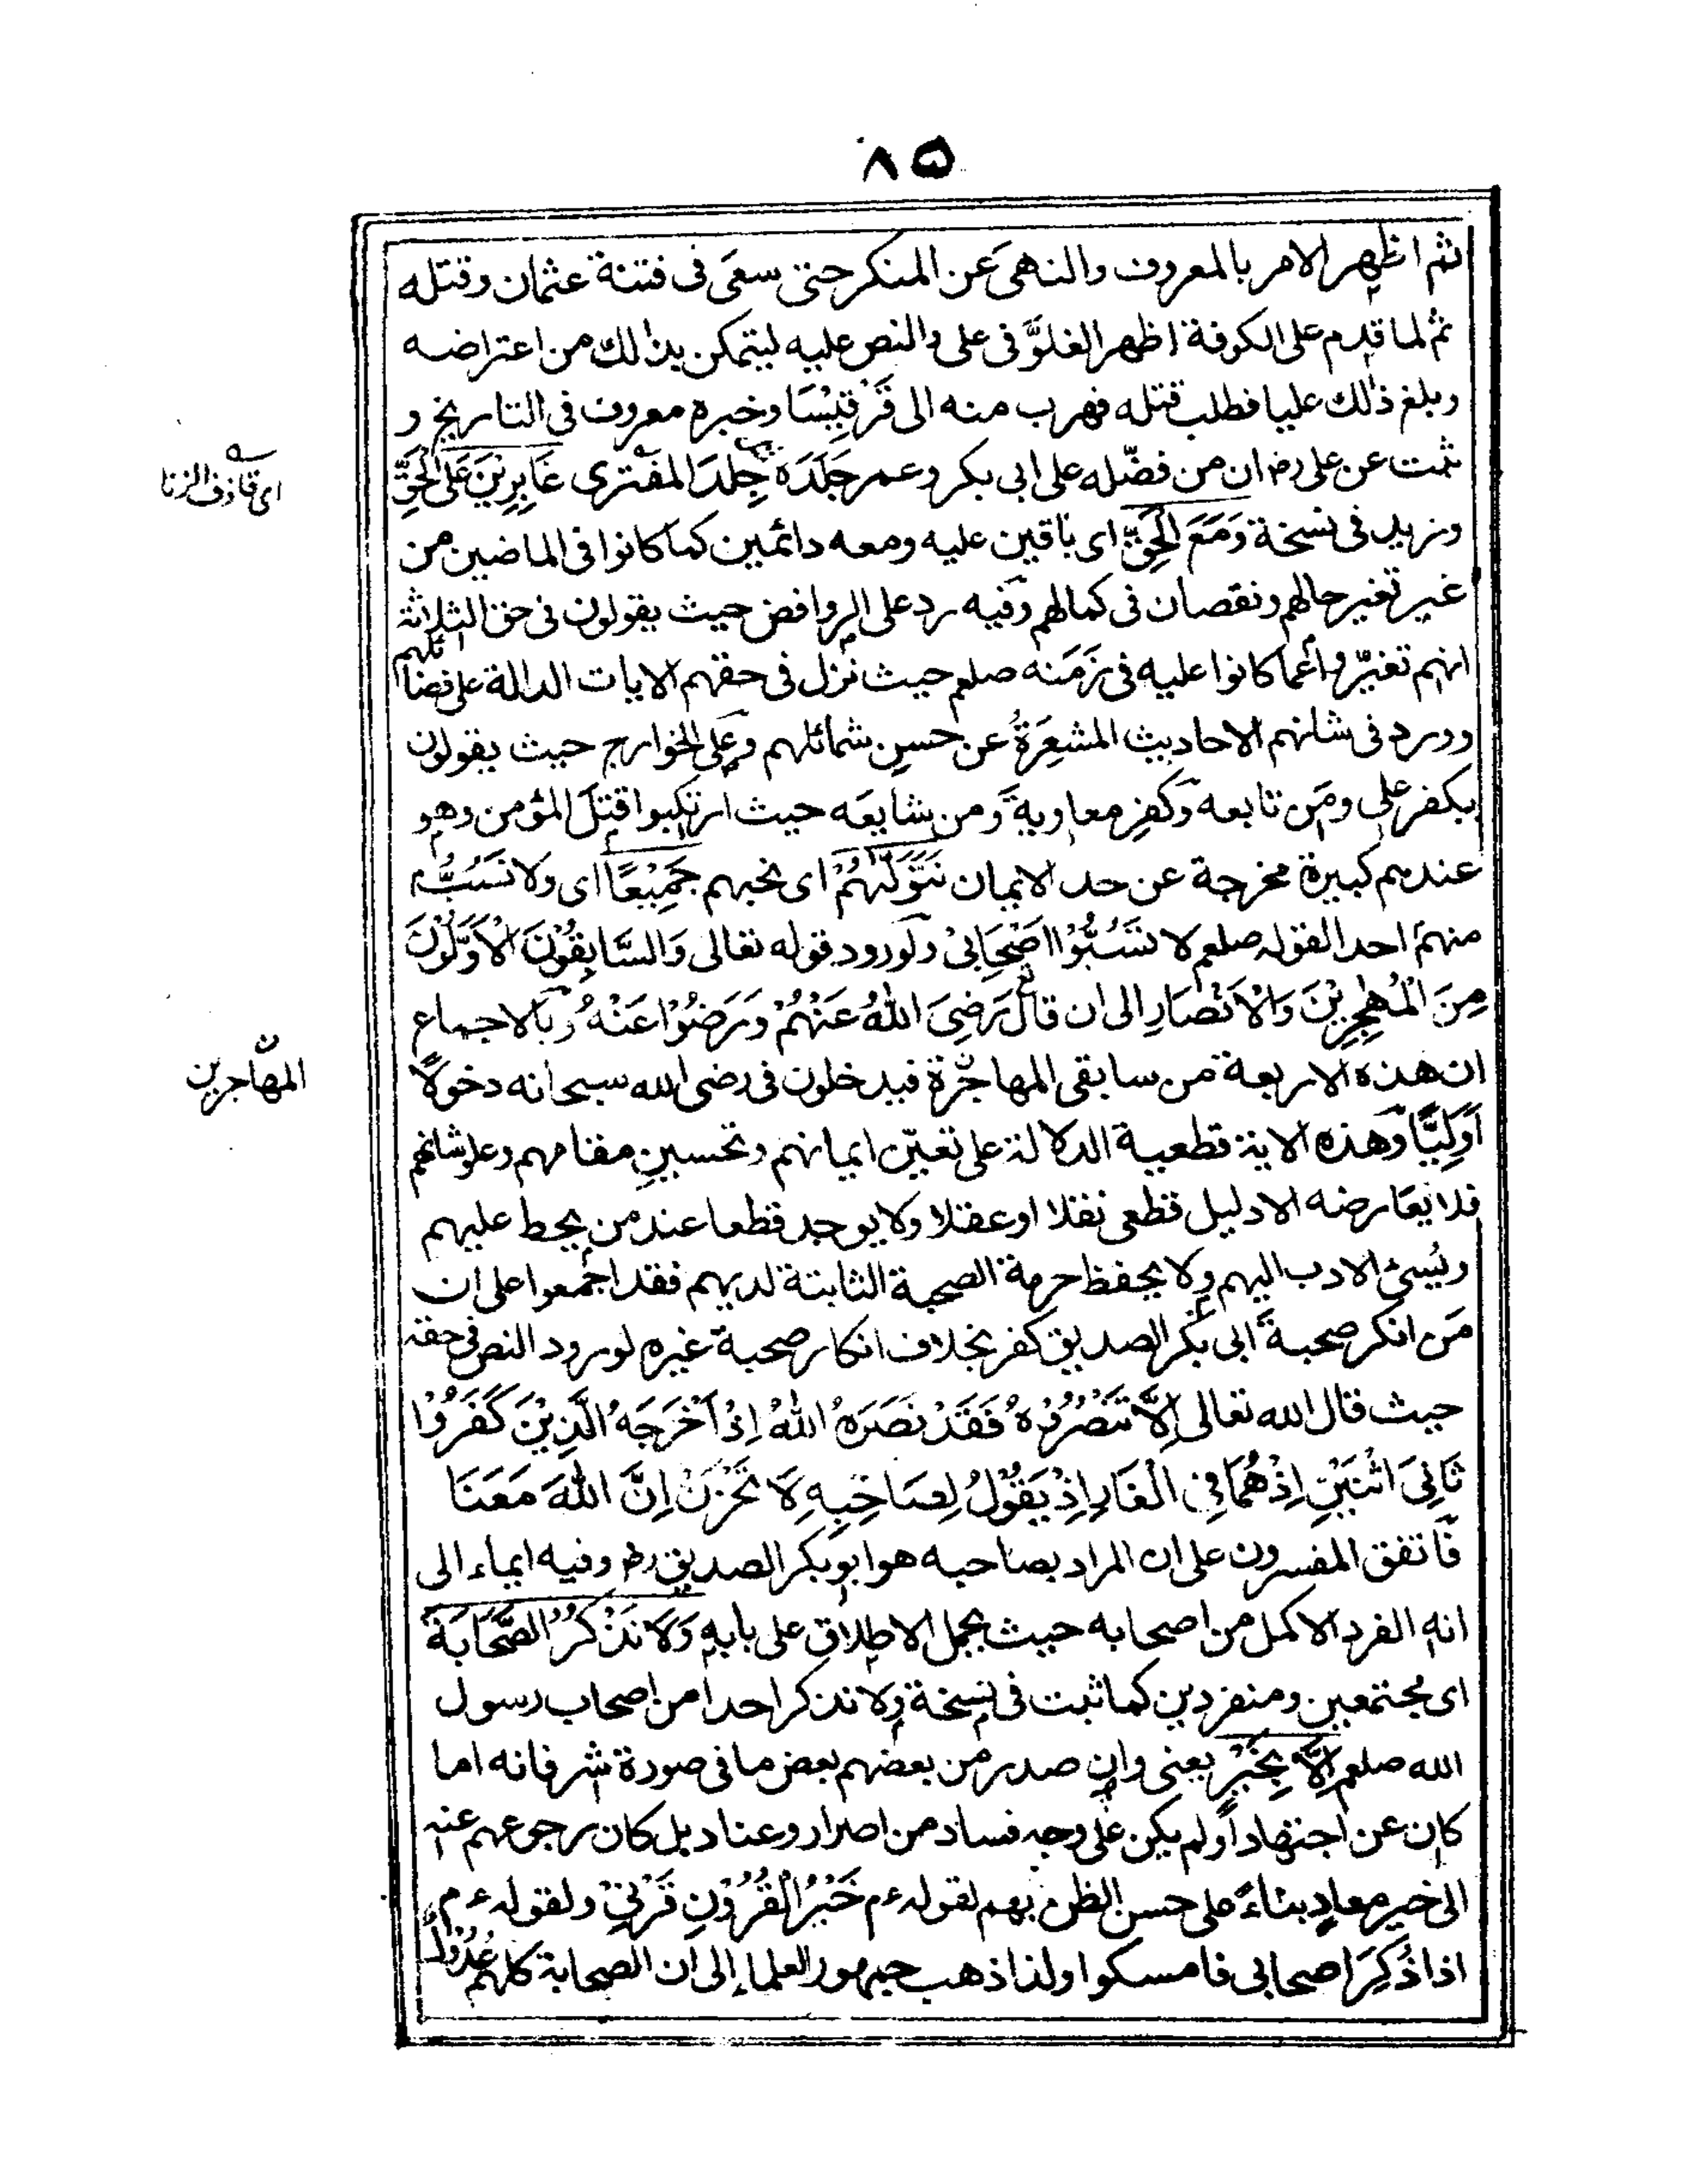 ٨٥
ثم اظهر الامر بالمعروف والنهي عن المنكر حتى سعى فى فتنة عثمان وقتله
ثم لما قدم على الكوفة اظهر الغلوّ فى على والنص عليه ليتمكن بذالك من اعتراضه
وبلغ ذالك عليا فطلب قتله فهرب منه الى قَرْقِيْسَا وخبره معروف فى التاريخ و
ثبت عن على رضـ ان من فضّله على ابى بكر وعمر جَلَدَه جِلدَ المفترى غَابِرِيْنَ عَلَى الْحَقِّ
اى قاذف الزنا
وزيد فى نسخة وَمَعَ الْحَقِّ اى باقين عليه ومعه دائمين كما كانوا فى الماضين من
غير تغير حالهم ونقصان فى كمالهم وفيه رد على الروافض حيث يقولون فى حق الثلاثة
انهم تغيّروا عما كانوا عليه فى زَمَنه صلعم حيث نزل فى حقهم الايات الدالة على فضائلهم
وورد فى شانهم الاحاديث المشعِرَةُ عن حسنِ شمائلهم وعلى الخوارج حيث يقولون
بكفر على ومَن تابعه وكفرِ معاوية ومن شايعَه حيث ارتكبوا قتلَ المؤمن وهو
عندهم كبيرة مخرجة عن حد الايمان نَتَوَلَّهُمْ اى نحبهم جَمِيْعًا اى ولا نَسُبُّ
منهم احدا لقوله صلعم لا تَسُبُّوْا اَصْحَابِىْ ولورود قوله تعالى وَالسَّابِقُوْنَ الْاَوَّلُوْنَ
مِنَ الْمُهٰجِرِيْنَ وَالْاَنْصَارِ الى ان قال رَضِىَ اللّٰهُ عَنْهُمْ وَرَضُوْا عَنْهُ وبالاجماع
ان هذه الاربعة من سابقى المهاجرة فيدخلون فى رضى الله سبحانه دخولًا
المهاجرين
اَوَلِيًّا وهذه الاية قطعية الدلالة على تعيّن ايمانهم وتحسينِ مقامهم وعلو شانهم
فلا يعارضه الا دليل قطعى نقلا او عقلا ولا يوجد قطعا عند من يحط عليهم
ويُسئ الادب اليهم ولا يحفظ حرمة الصحبة الثابتة لديهم فقد اجمعوا على ان
مَن انكر صحبةَ ابى بكر الصديق كفر بخلاف انكار صحبة غيره لورود النص فى حقه
حيث قال الله تعالى اِلَّا تَنْصُرُوْهُ فَقَدْ نَصَرَهُ اللّٰهُ اِذْ اَخْرَجَهُ الَّذِيْنَ كَفَرُوْا
ثَانِىَ اثْنَيْنِ اِذْ هُمَا فِى الْغَارِ اِذْ يَقُوْلُ لِصَاحِبِهِ لَا تَحْزَنْ اِنَّ اللّٰهَ مَعَنَا
فاتفق المفسرون على ان المراد بصاحبه هو ابو بكر الصديق رضـ وفيه ايماء الى
انه الفرد الاكمل من اصحابه حيث يحمل الاطلاق على بابه وَلَا نَذْكُرُ الصَّحَابَةَ
اى مجتمعين ومنفردين كما ثبت فى نسخة ولا نذكر احدا من اصحاب رسول
الله صلعم اِلَّا بِخَيْرٍ يعنى وان صدر من بعضهم بعض ما فى صورة شر فانه اما
كان عن اجتهاد او لم يكن على وجه فساد من اصرار وعناد بل كان رجوعهم عنه
الى خير معادٍ بناءً على حسن الظن بهم لقوله عم خَيْرُ الْقُرُوْنِ قَرْنِىْ ولقوله عم
اذا ذُكِرَ اصحابى فامسكوا ولذا ذهب جمهور العلماء إلى ان الصحابة كلهم عُدُوْلٌ